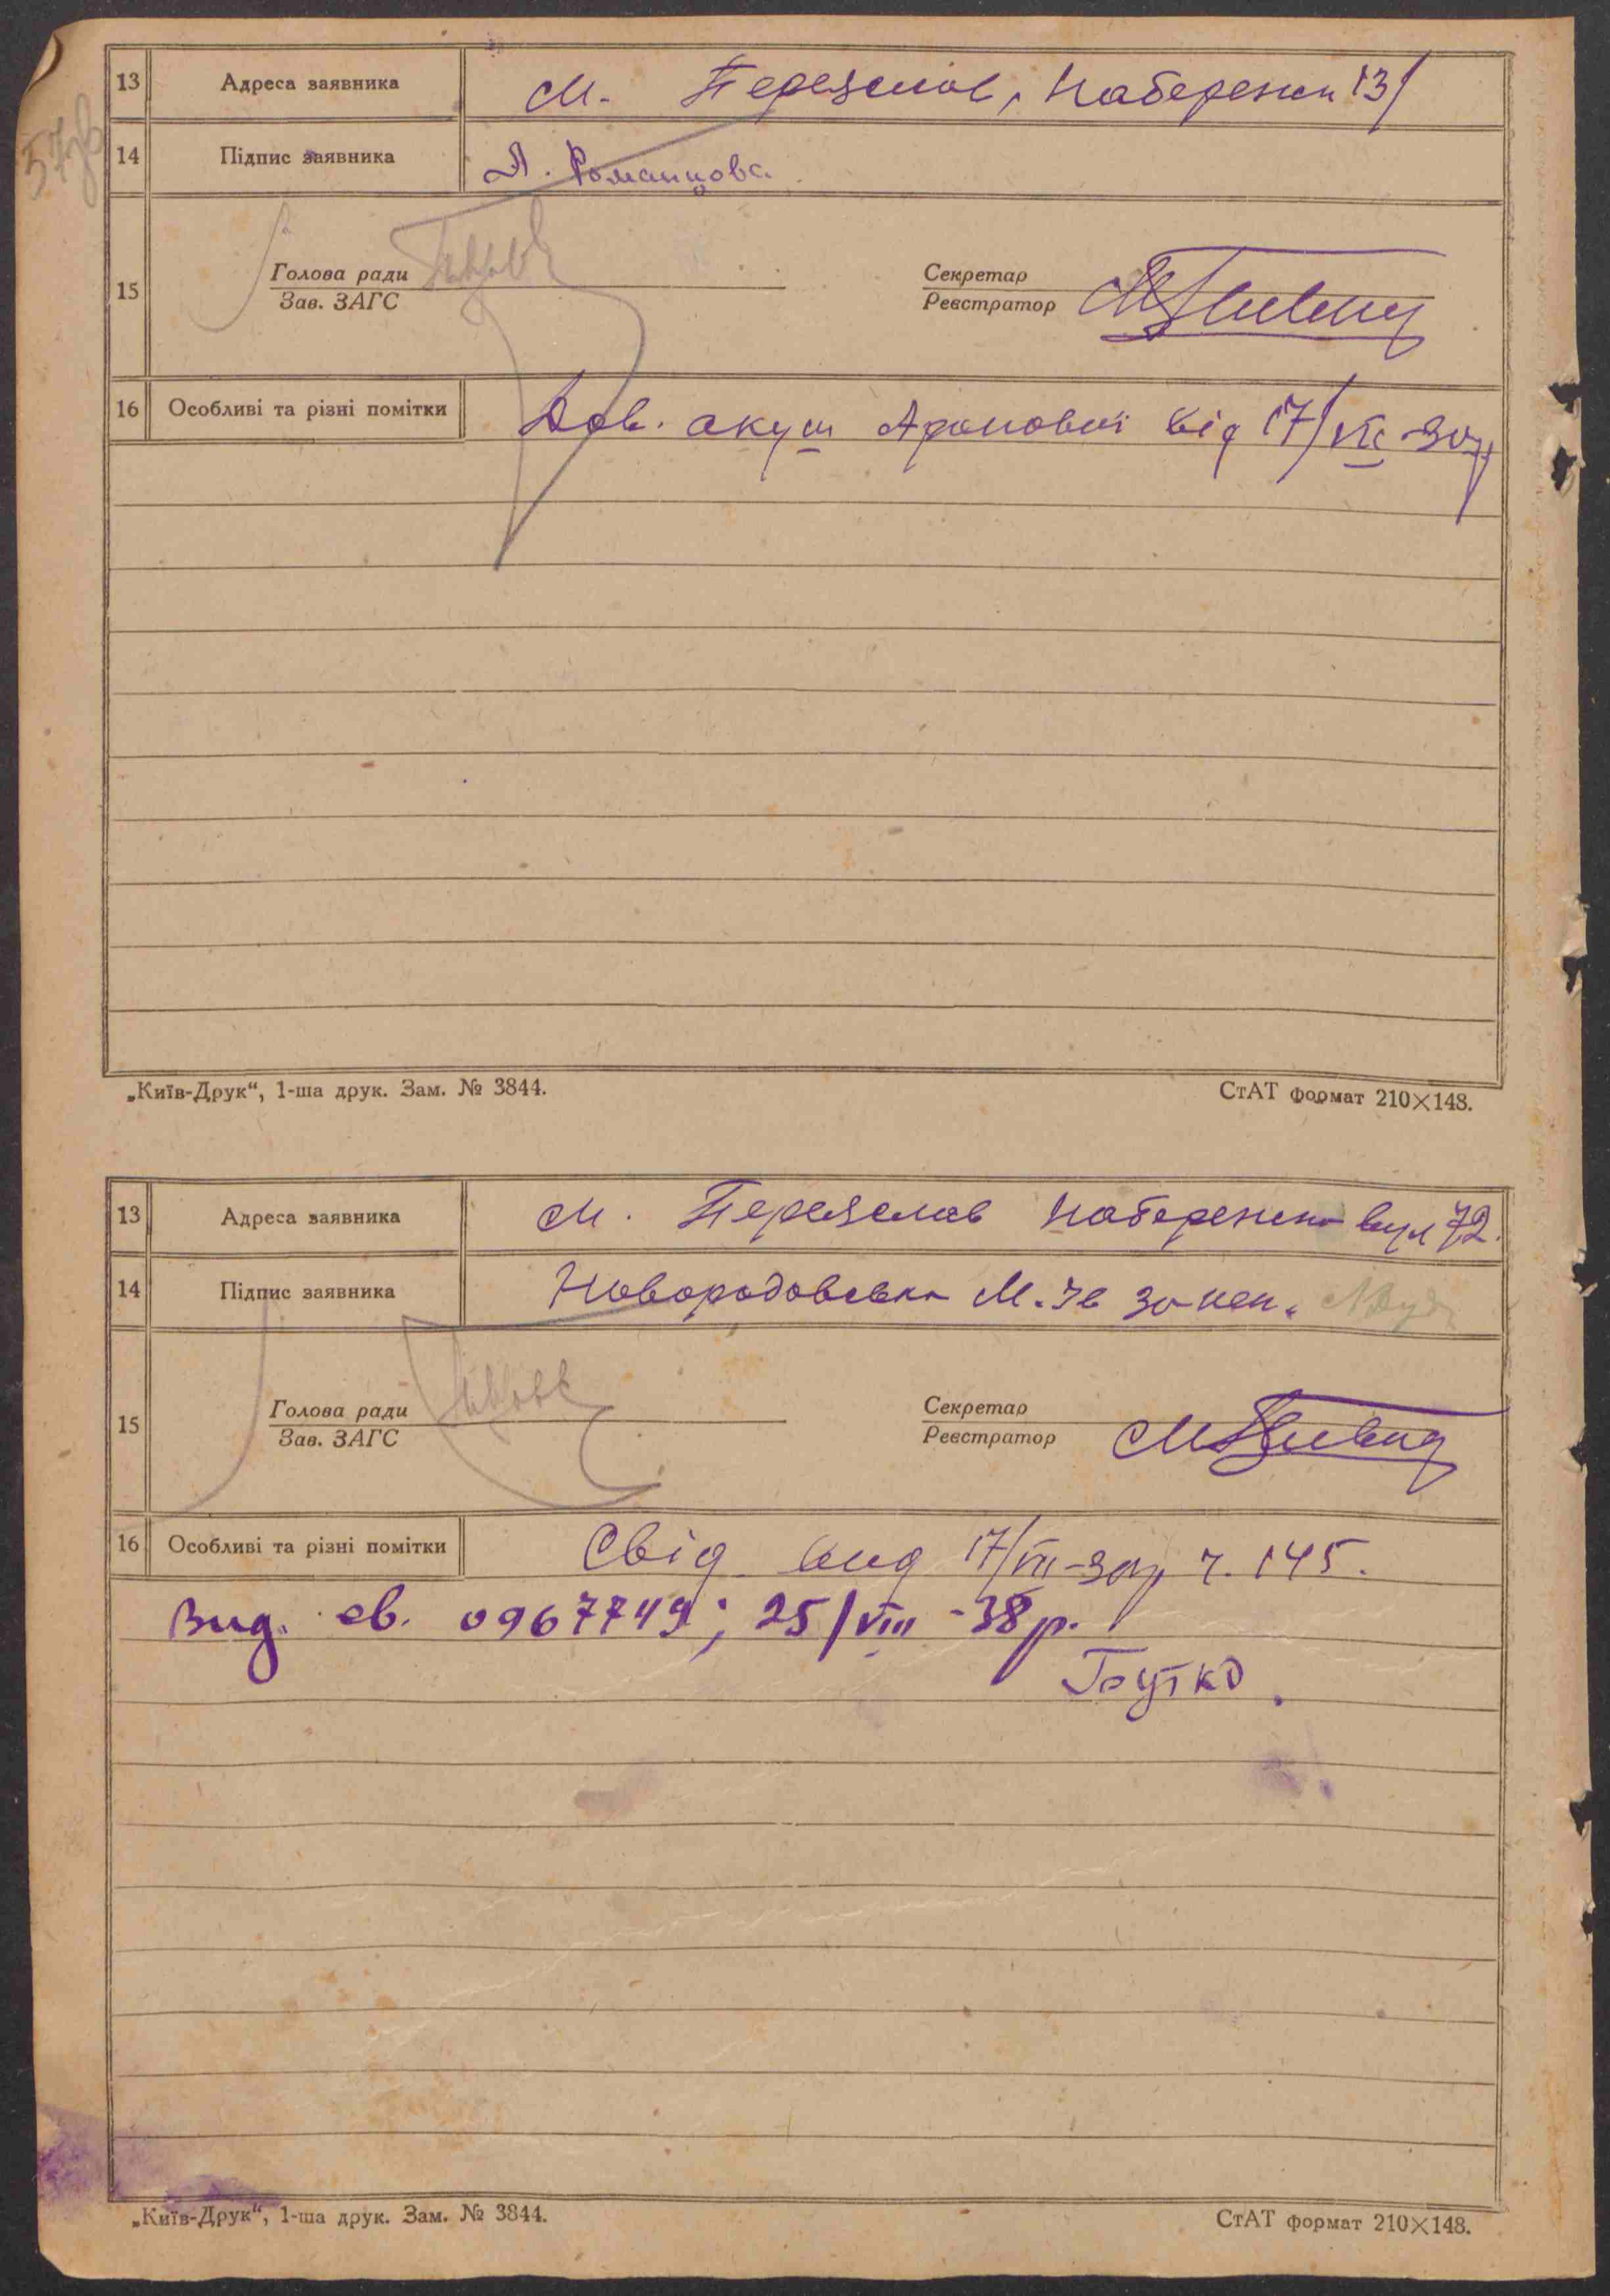 57зв
13 Адреса заявника м. Переяслав, Набережн 13/
14 Підпис заявника Я. Романцова
15 Голова ради Секретар
Зав. ЗАГС Реєстратор
16 Особливі та різні помітки Дов. акуш від 17/VII-30р
„Київ-Друк“, 1-ша друк. Зам. № 3844. СтАТ формат 210×148.
13 Адреса заявника м. Переяслав Набережна вул 72.
14 Підпис заявника М.
15 Голова ради Секретар
Зав. ЗАГС Реєстратор
16 Особливі та різні помітки Свід. вид 17/VII-30р ч. 145.
Вид. св. 0967749; 25/VIII-38р.
„Київ-Друк“, 1-ша друк. Зам. № 3844. СтАТ формат 210×148.